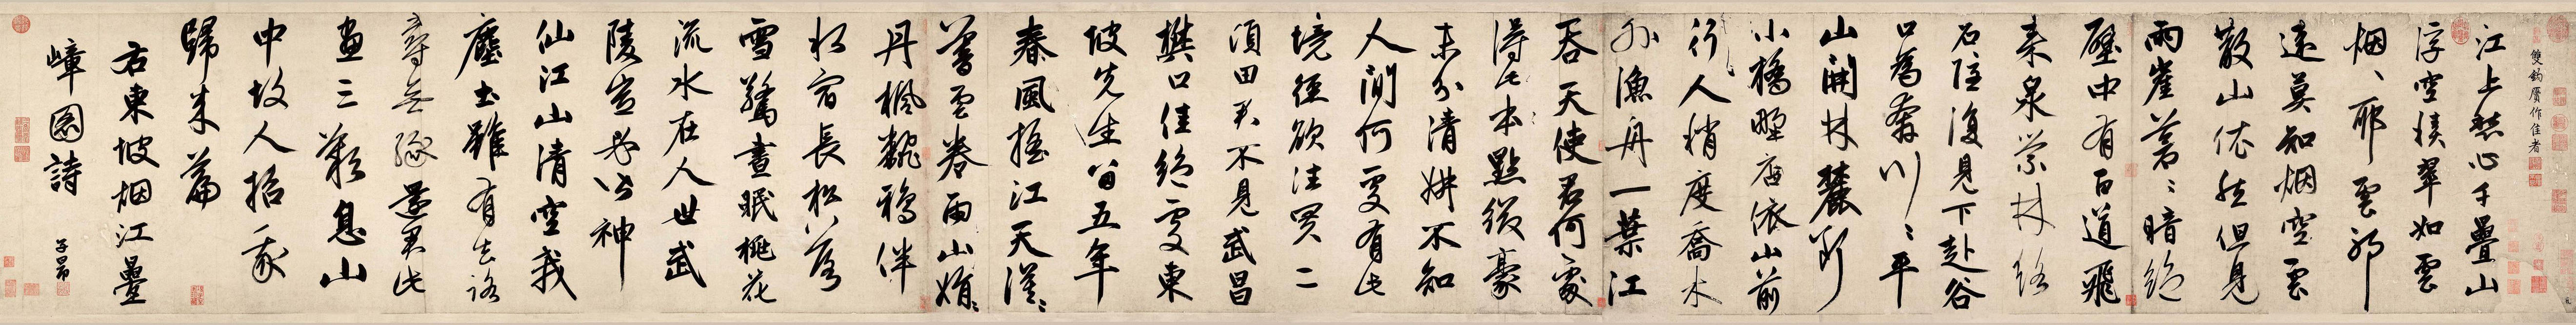 雙鈎贗作佳者
江上愁心千疊山
浮空積翠如雲
烟〻耶雲耶
遠莫知烟空雲
散山依然但見
兩崖蒼〻暗絕
壁中有百道飛
來泉縈林絡
石隱復見下赴谷
口為奔川〻平
山開林麓斷
小橋野店依山前
行人稍度喬木
外漁舟一葉江
吞天使君何處
得此本點綴豪
末分清妍不知
人間何處有此
境徑欲往買二
頃田君不見武昌
樊口佳絕處東
坡先生留五年
春風搖江天漠〻
暮雲卷雨山娟〻
丹楓翻鴉伴
水宿長松落
雪驚晝眠桃花
流水在人世武
陵豈必皆神
仙江山清空我
塵土雖有去路
尋無緣還君此
畫三歎息山
中故人招我
歸來篇
右東坡烟江疊
嶂圖詩
子昂